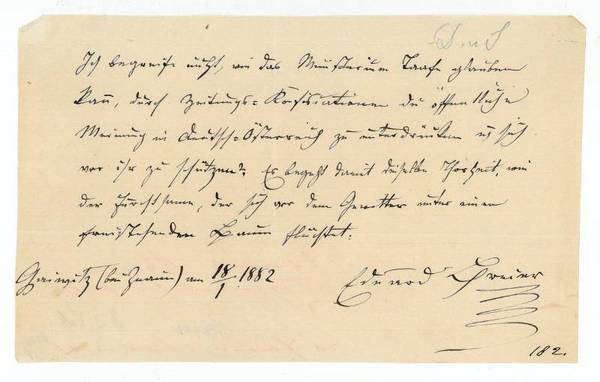 Ich begreife nicht, wie das Ministerium Taafe glauben
kann, durch Zeitungs-Konfiskationen die öffentliche
Meinung in Deutsch-Österreich zu unterdrücken u sich
vor ihr zu schützen? Es begeht damit dieselbe Thorheit, wie
der Furchtsame, der sich vor dem Gewitter unter einen
freistehenden Baum flüchtet.
Gaiwitz (bei Znaim) am 18/1 1882
Eduard Breier
182.